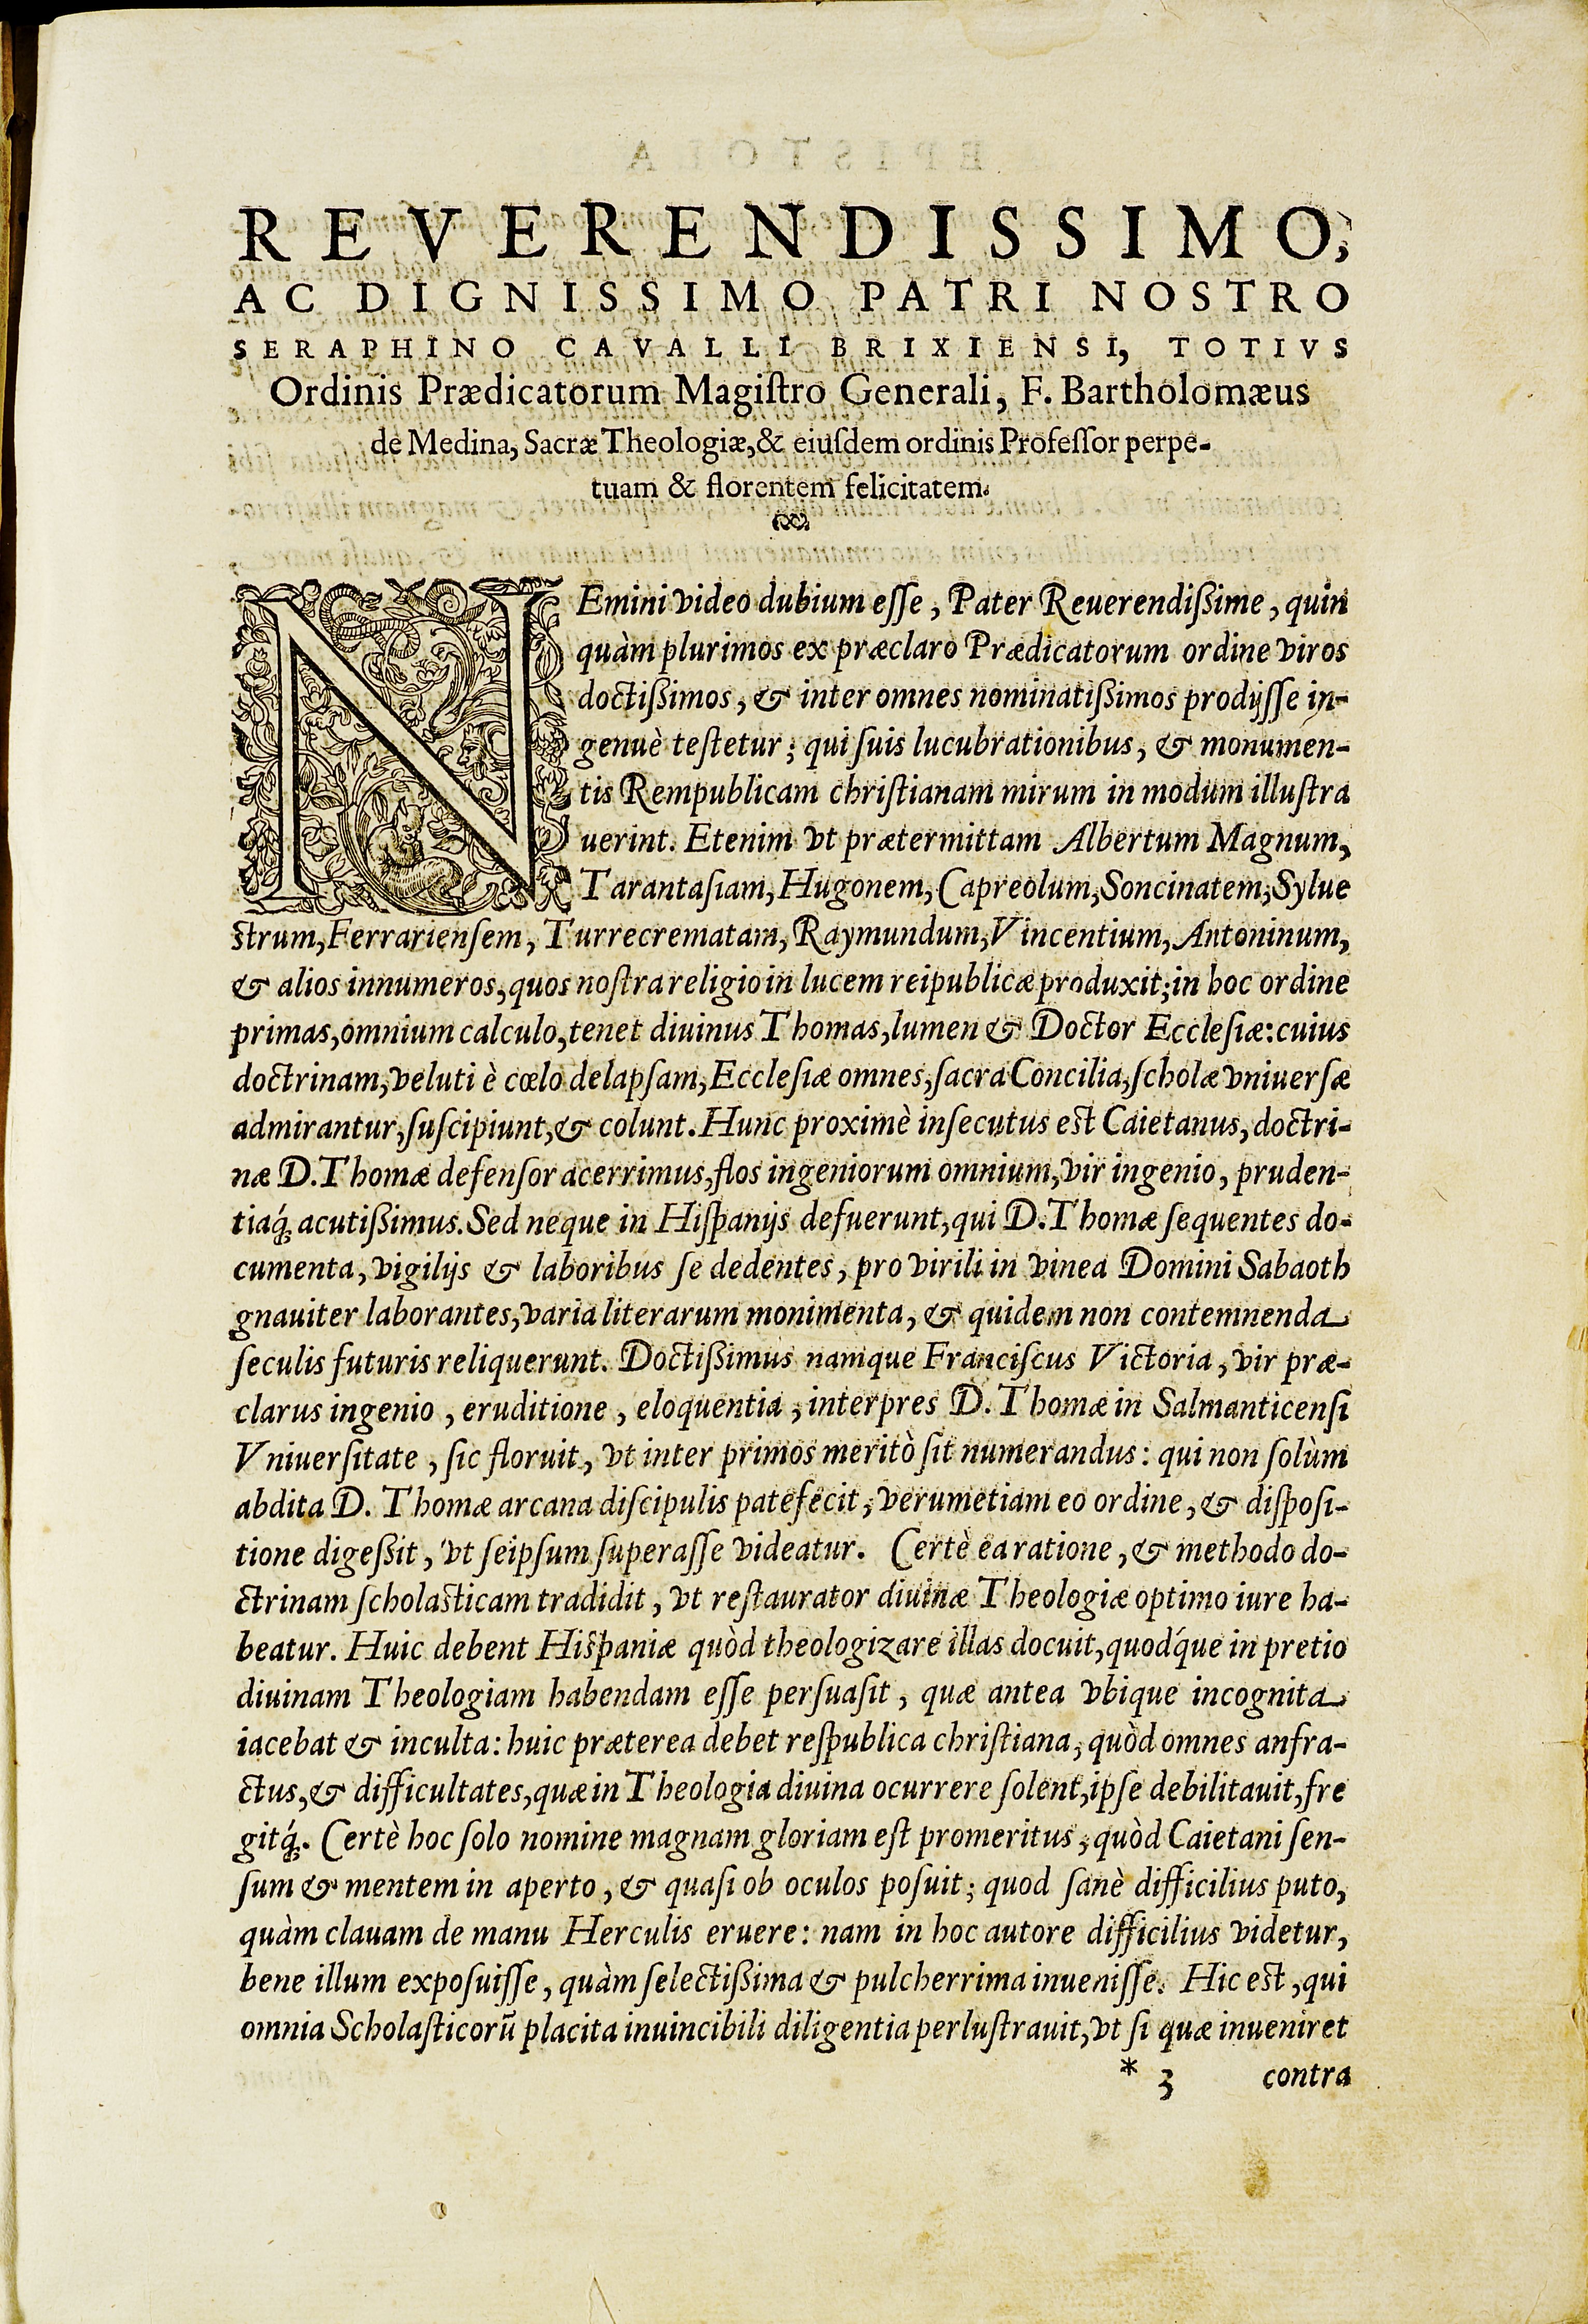 REVERENDISSIMO,
AC DIGNISSIMO PATRI NOSTRO
SERAPHINO CAVALLI BRIXIENSI, TOTIVS
Ordinis Prædicatorum Magiſtro Generali, F. Bartholomæus
de Medina, Sacræ Theologiæ, & eiuſdem ordinis Profeſſor perpe-
tuam & florentem felicitatem.
NEmini video dubium eſſe, Pater Reuerendißime, quin
quàm plurimos ex præclaro Prædicatorum ordine viros
doctißimos, & inter omnes nominatißimos prodijſſe in-
genuè teſtetur; qui ſuis lucubrationibus, & monumen-
tis Rempublicam chriſtianam mirum in modum illuſtra
uerint. Etenim vt prætermittam Albertum Magnum,
Tarantaſiam, Hugonem, Capreolum, Soncinatem, Sylue
ſtrum, Ferrarienſem, Turrecrematam, Raymundum, Vincentium, Antoninum,
& alios innumeros, quos noſtra religio in lucem reipublicæ produxit; in hoc ordine
primas, omnium calculo, tenet diuinus Thomas, lumen & Doctor Eccleſiæ: cuius
doctrinam, veluti è cœlo delapſam, Eccleſiæ omnes, ſacra Concilia, ſcholæ vniuerſæ
admirantur, ſuſcipiunt, & colunt. Hunc proximè inſecutus eſt Caietanus, doctri-
næ D. Thomæ defenſor acerrimus, flos ingeniorum omnium, vir ingenio, pruden-
tiaq́; acutißimus. Sed neque in Hiſpanijs defuerunt, qui D. Thomæ ſequentes do-
cumenta, vigilijs & laboribus ſe dedentes, pro virili in vinea Domini Sabaoth
gnauiter laborantes, varia literarum monimenta, & quidem non contemnenda
ſeculis futuris reliquerunt. Doctißimus namque Franciſcus Victoria, vir præ-
clarus ingenio, eruditione, eloquentia, interpres D. Thomæ in Salmanticenſi
Vniuerſitate, ſic floruit, vt inter primos meritò ſit numerandus: qui non ſolùm
abdita D. Thomæ arcana diſcipulis patefecit, verumetiam eo ordine, & diſpoſi-
tione digeßit, vt ſeipſum ſuperaſſe videatur. Certè ea ratione, & methodo do-
ctrinam ſcholaſticam tradidit, vt reſtaurator diuinæ Theologiæ optimo iure ha-
beatur. Huic debent Hiſpaniæ quòd theologizare illas docuit, quod́que in pretio
diuinam Theologiam habendam eſſe perſuaſit, quæ antea vbique incognita
iacebat & inculta: huic præterea debet reſpublica chriſtiana, quòd omnes anfra-
ctus, & difficultates, quæ in Theologia diuina ocurrere ſolent, ipſe debilitauit, fre
gitq́;. Certè hoc ſolo nomine magnam gloriam eſt promeritus, quòd Caietani ſen-
ſum & mentem in aperto, & quaſi ob oculos poſuit; quod ſanè difficilius puto,
quàm clauam de manu Herculis eruere: nam in hoc autore difficilius videtur,
bene illum expoſuiſſe, quàm ſelectißima & pulcherrima inueniſſe. Hic eſt, qui
omnia Scholaſticorũ placita inuincibili diligentia perluſtrauit, vt ſi quæ inueniret
* 3 contra